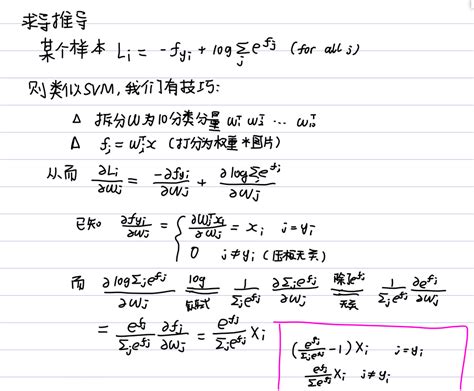 求导推导
某个样本 Li = -fyi + log Σj e^fj (for all j)
则类似SVM,我们有技巧:
△ 拆分W为10分类分量 w1^T w2^T … w10^T
△ fj = wj^T x (打分为权重*图片)
从而 ∂Li/∂wj = -∂fyi/∂wj + ∂log Σj e^fj/∂wj
已知 ∂fyi/∂wj = { ∂wj^T xi/∂wj = xi j = yi
0 j ≠ yi (压根无关)
而 ∂log Σj e^fj/∂wj =(log 链式) 1/Σj e^fj ∂Σj e^fj/∂wj =(除了e^fj 无关) 1/Σj e^fj ∂e^fj/∂wj
= e^fj/Σj e^fj ∂fj/∂wj = e^fj/Σj e^fj Xi
(e^fj/Σj e^fj - 1) Xi j = yi
e^fj/Σj e^fj Xi j ≠ yi